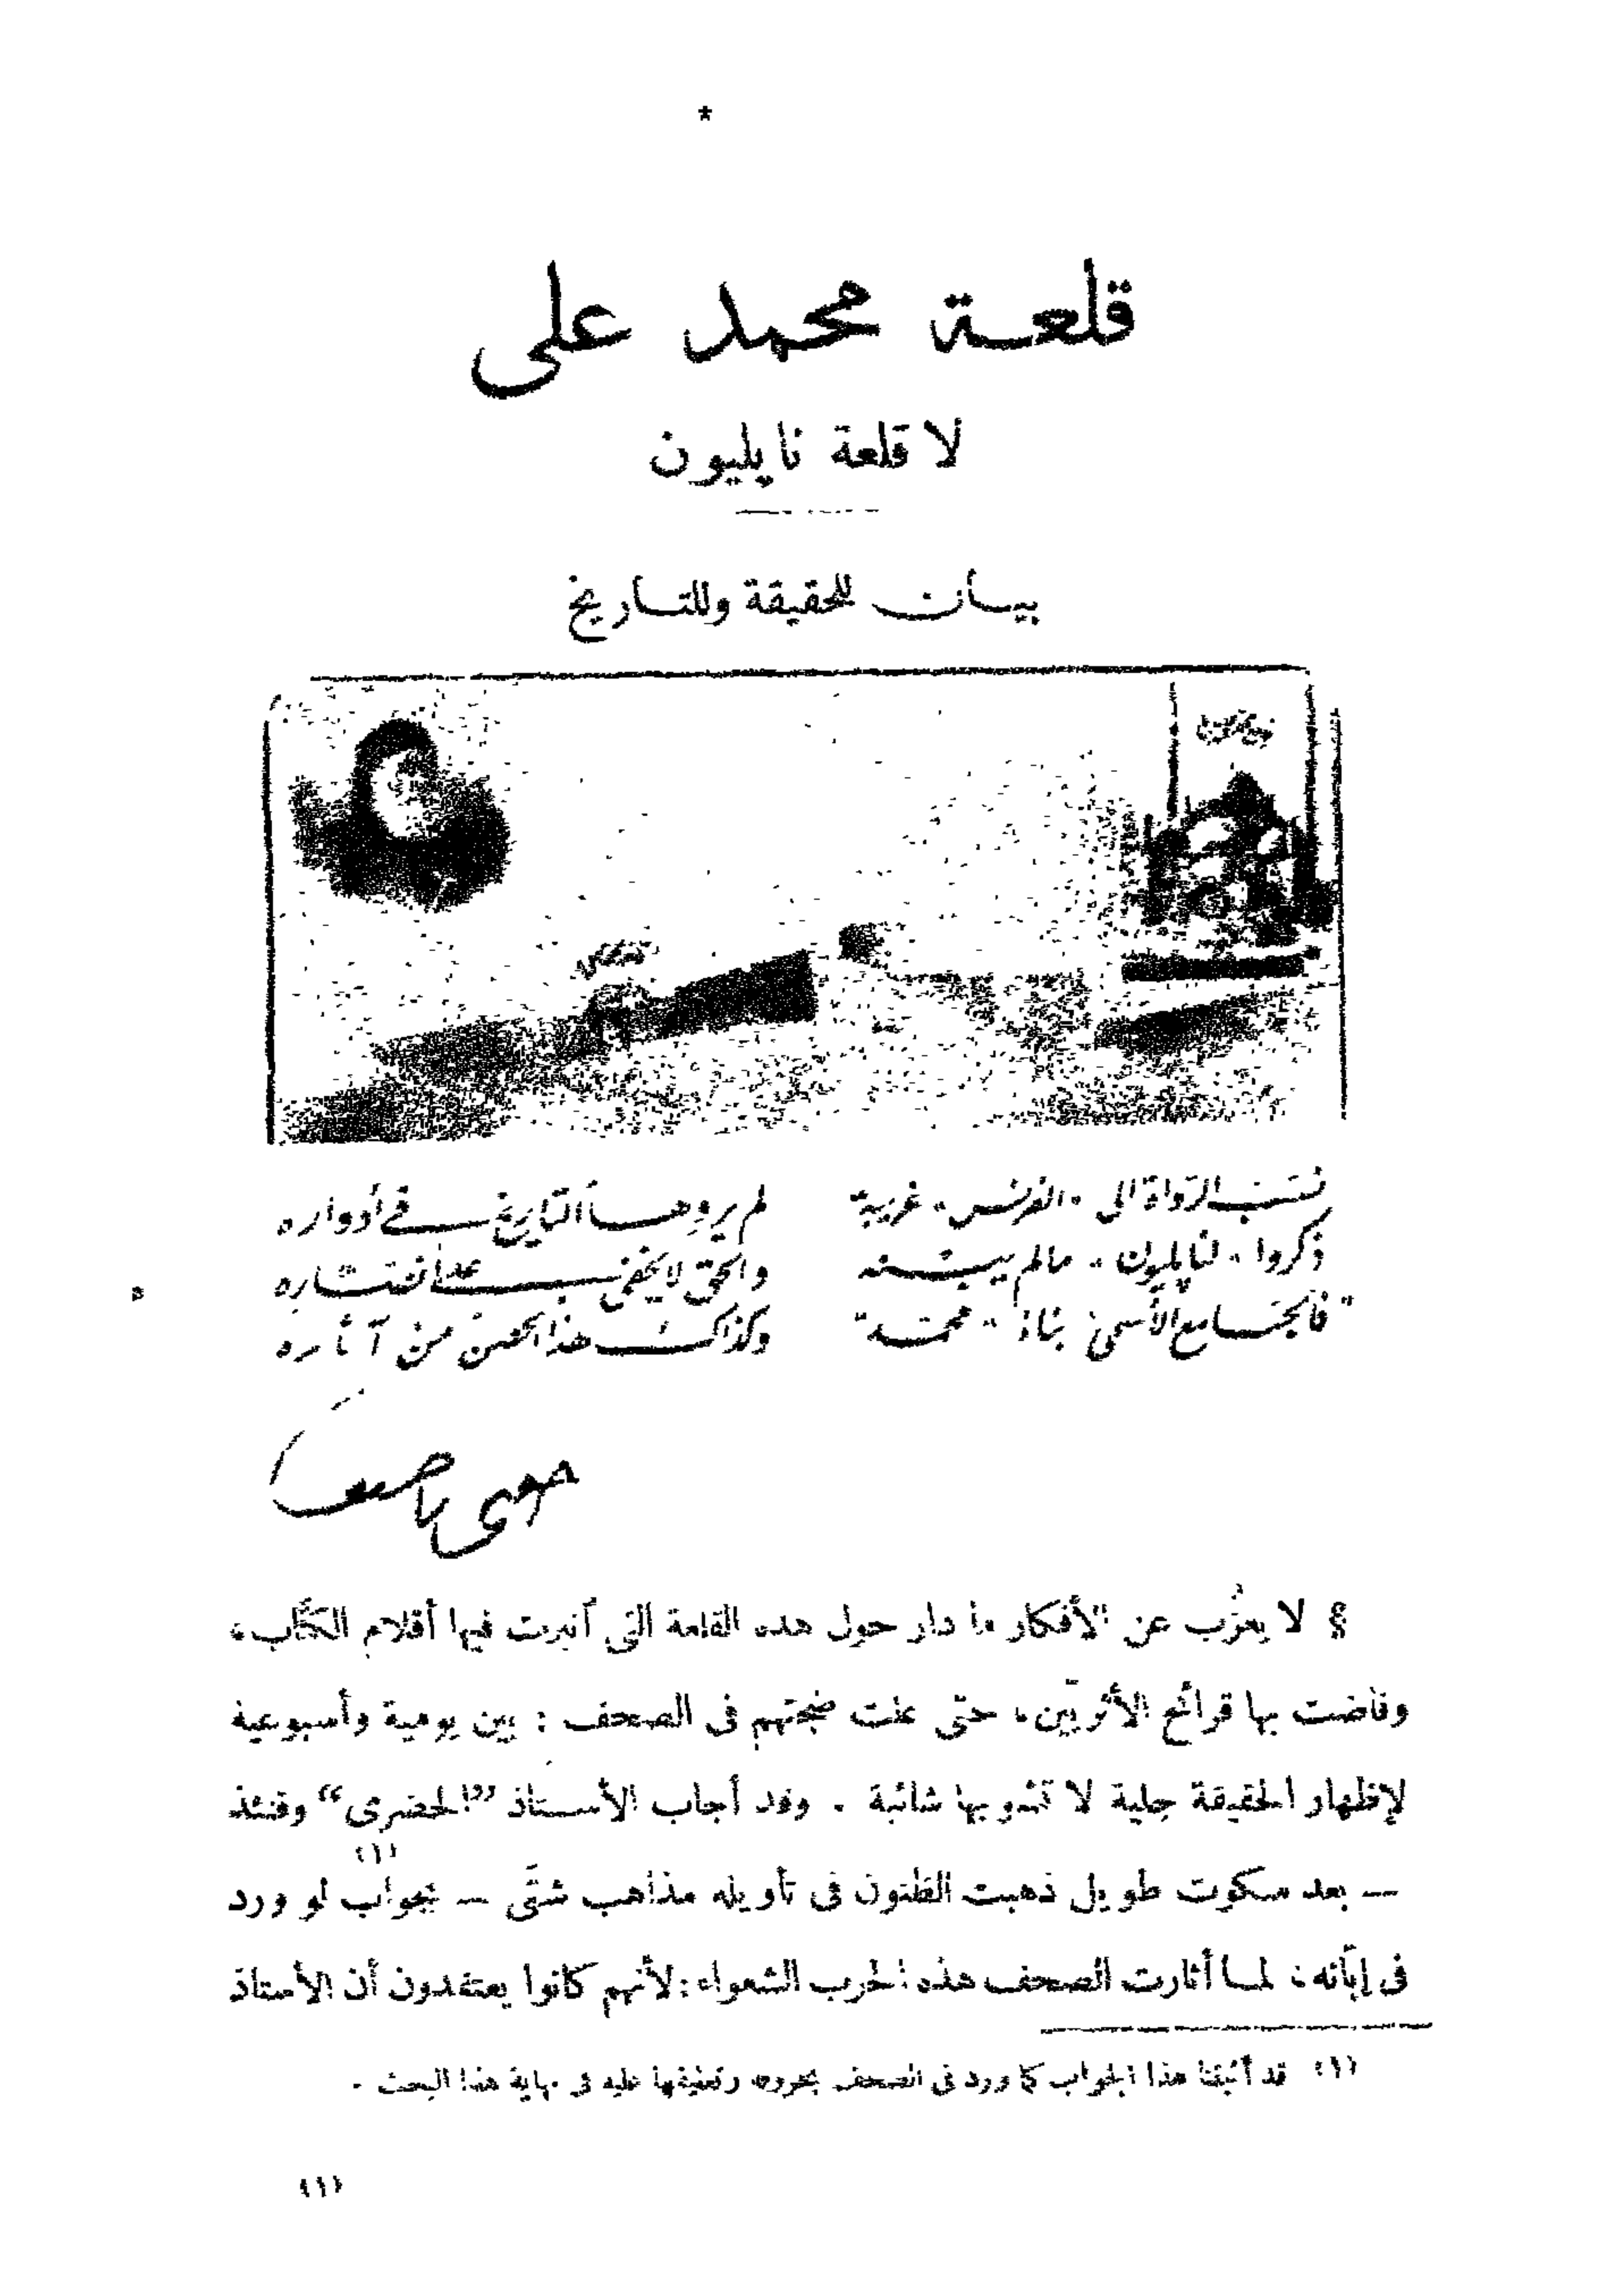 قلعة محمد على
لا قلعة نابليون
بيان للحقيقة وللتاريخ
نسب الرواة الى "الفرنس" غريبة لم يروها التاريخ فى أدواره
ذكروا "لنابليون" مالم يبنه والحق لا يخفى على أنصاره
"فالجامع الأسمى" بناء "محمد" وكذاك هذا الحصن من آثاره
§ لا يعزُب عن الأفكار ما دار حول هذه القلعة التى آنبرت فيها أقلام الكتَّاب،
وفاضت بها قرائح الأثريّين، حتّى علت ضجتهم فى الصحف : بين يومية وأسبوعية
لإظهار الحقيقة جلية لا تشو بها شائبة . وقد أجاب الأستاذ "الحضرى" وقتئذ
— بعد سكوت طويل ذهبت الظنون فى تأويله مذاهب شتَّى — بجواب (١) لو ورد
فى إبّانه، لما أثارت الصحف هذه الحرب الشعواء: لأنهم كانوا يعتقدون أن الأستاذ
(١) قد أثبتنا هذا الجواب كما ورد فى الصحف بحروفه وتعليقها عليه فى نهاية هذا البحث .
(١)